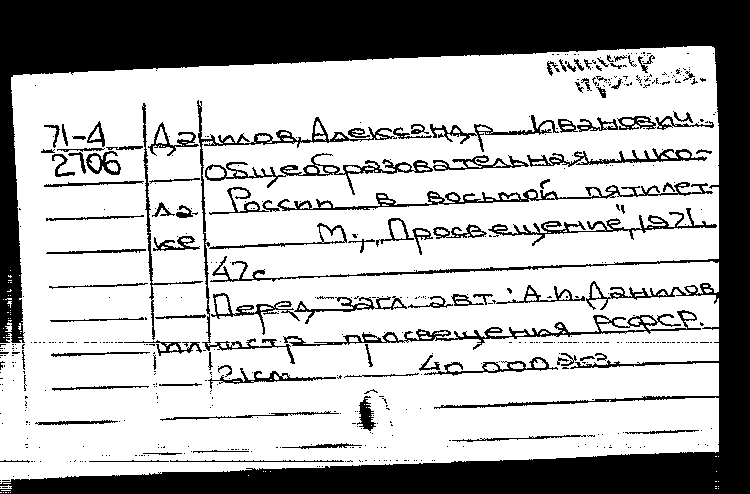 министр
просвещ.
71-4 Данилов, Александр Иванович.
2706 Общеобразовательная шко-
ла России в восьмой пятилет-
ке М., „Просвещение", 1971.
47с.
Перед загл. авт.: А.И. Данилов,
министр просвещения РСФСР.
21см. 40 000 экз.